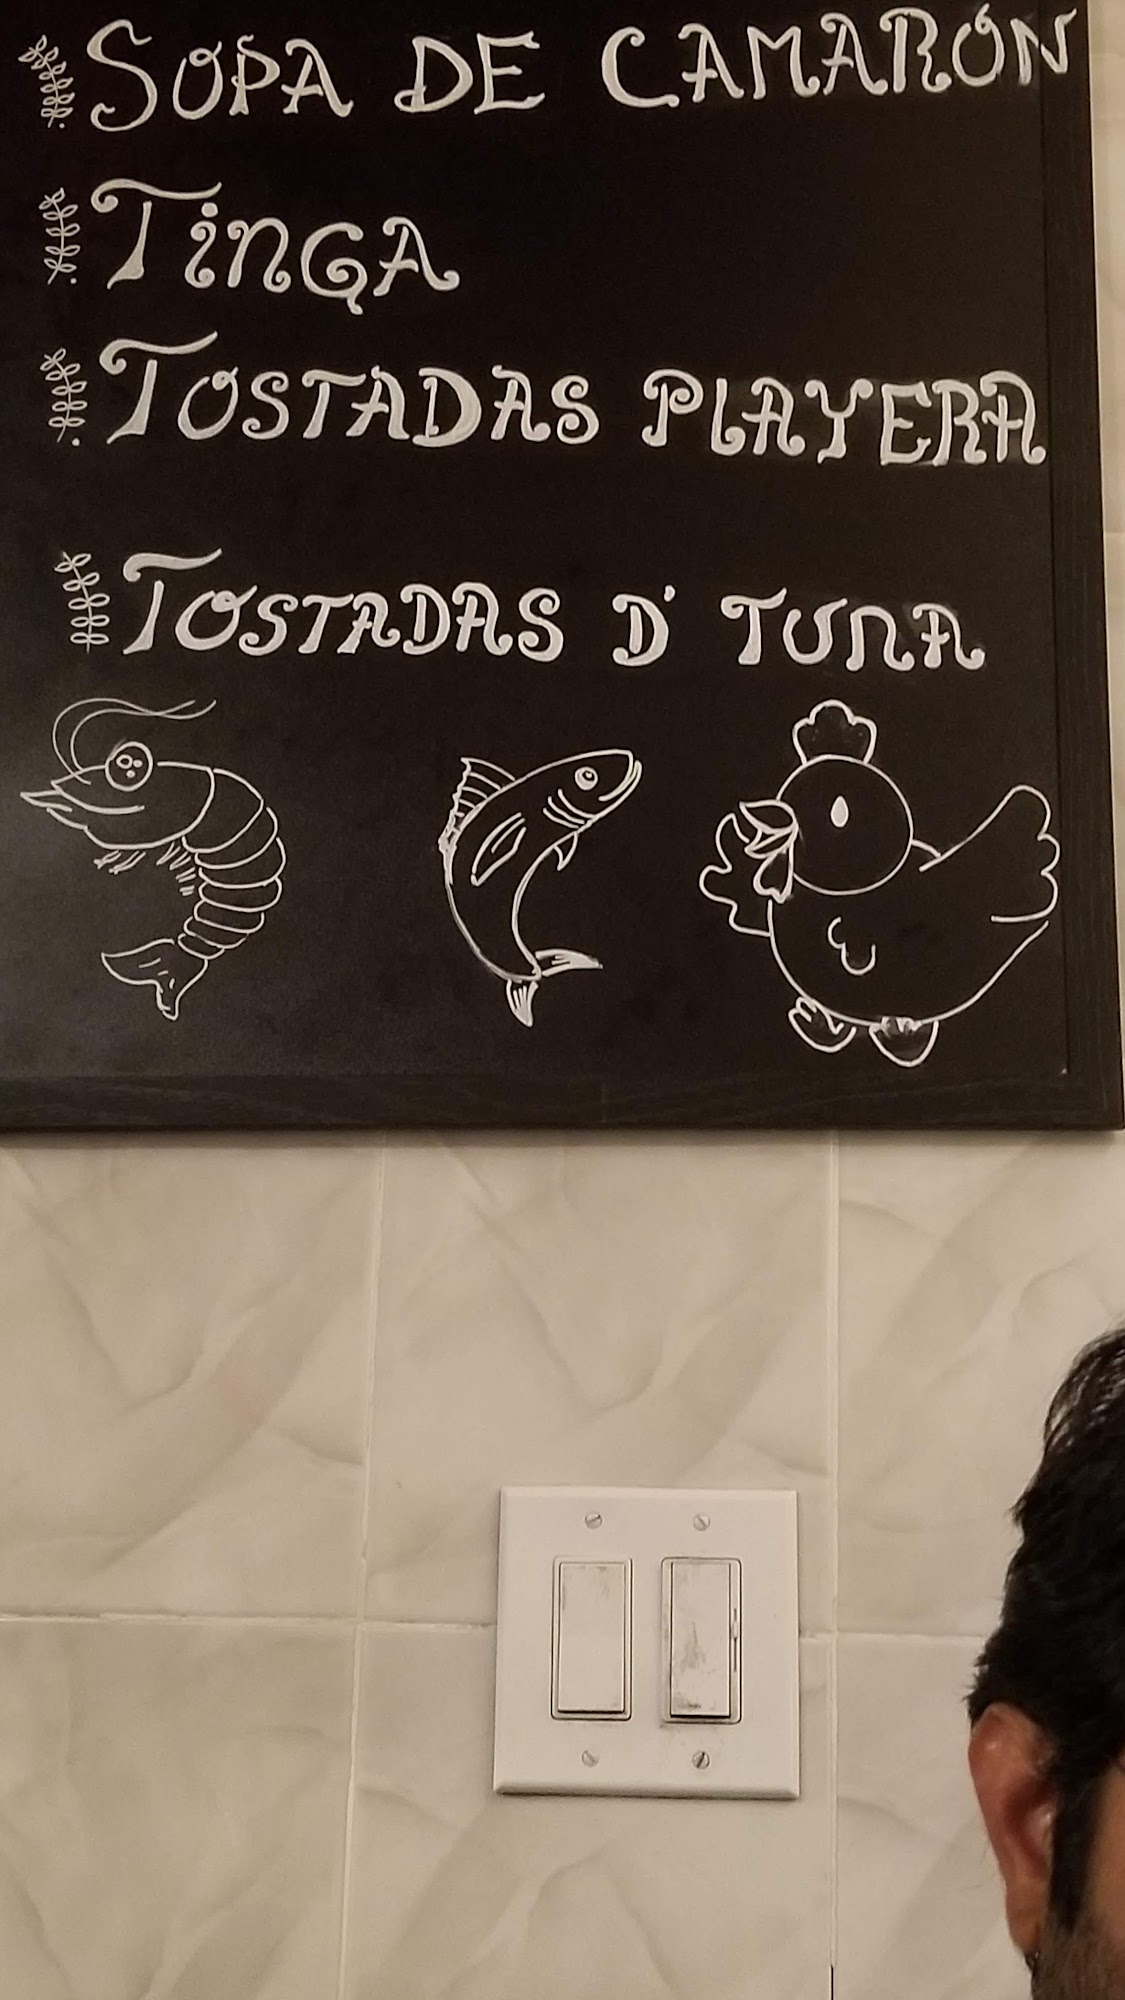 SOPA DE CAMARÓN
TiNGA
TOSTADAS PLAYERA
TOSTADAS D' TUNA